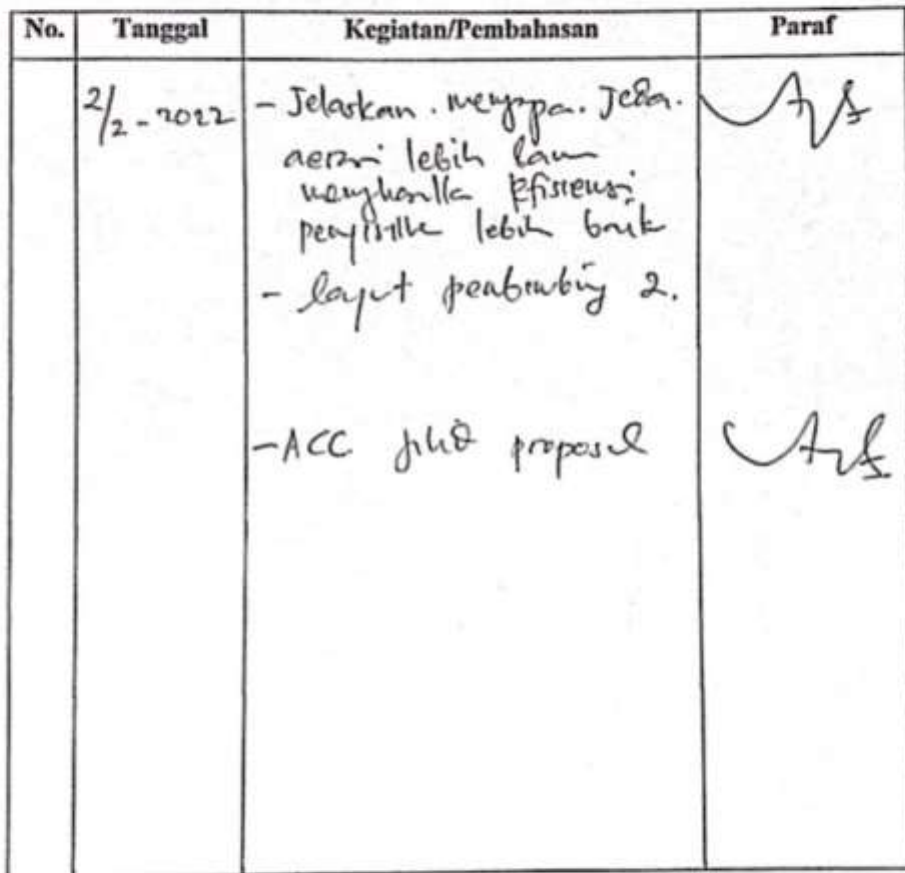 No. Tanggal Kegiatan/Pembahasan Paraf
2/2-2022 - Jelaskan. mengapa. Jeda.
aerasi lebih lama
menghasilkan Efisiensi
penyisihan lebih baik
- lanjut pembimbing 2.
- ACC proposal